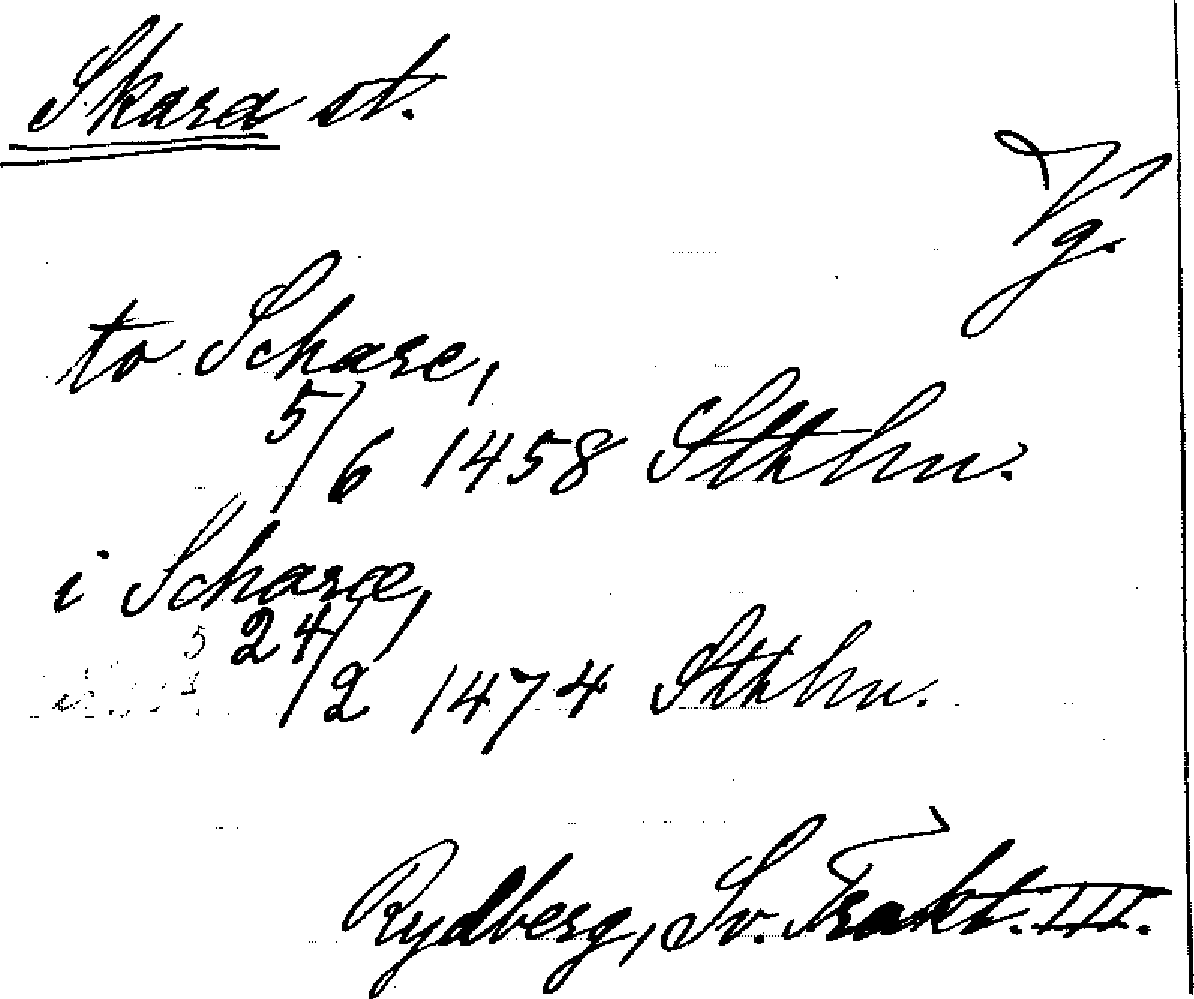 Skara st.
Vg.
to Schare,
5/6 1458 Sthlm.
i Scharæ,
24/2 1474 Sthlm.
Rydberg, Sv. Trakt. III.